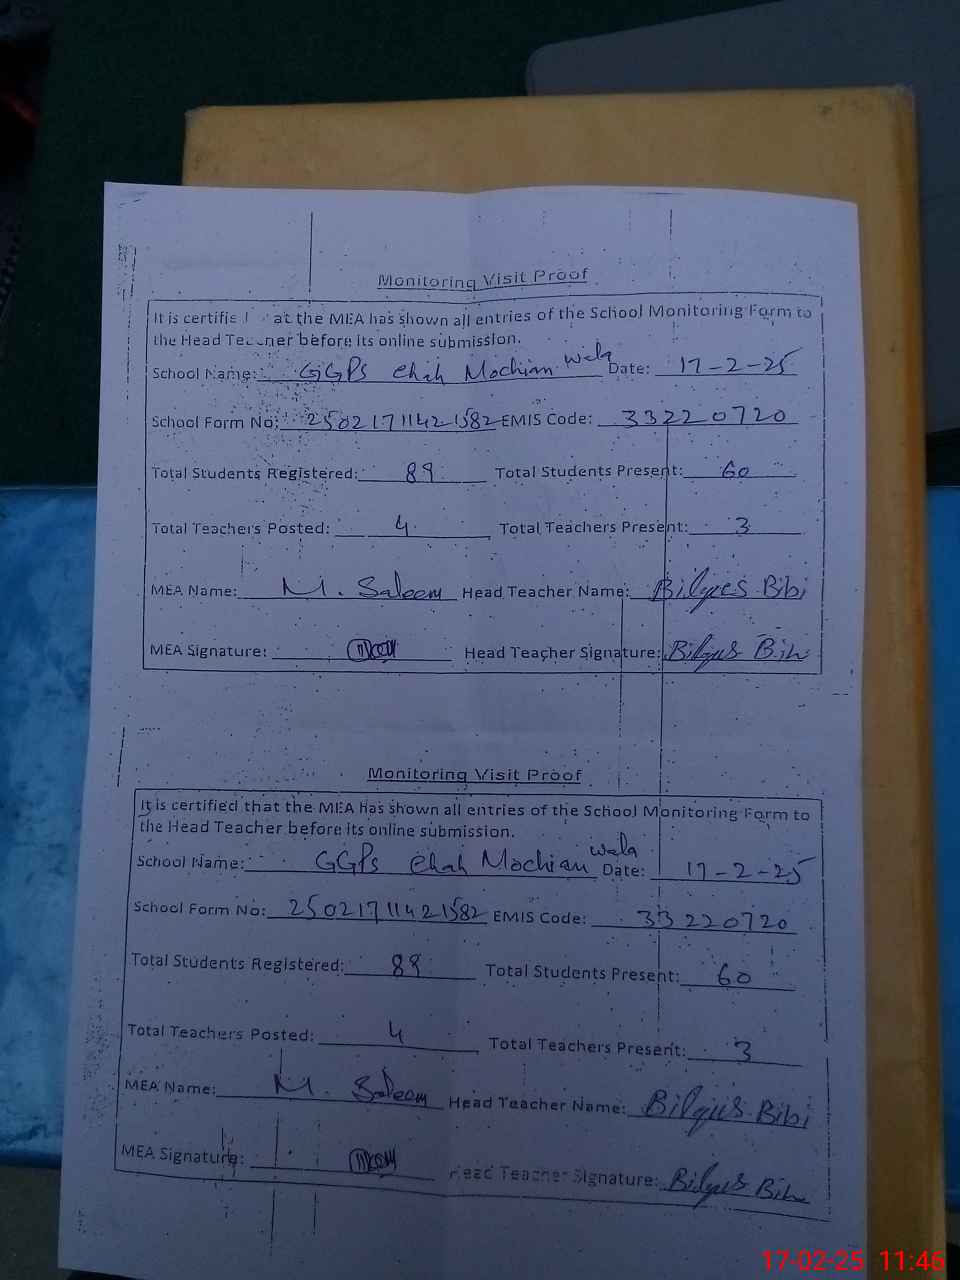 Monitoring Visit Proof
It is certified that the MEA has shown all entries of the School Monitoring Form to
the Head Teacher before its online submission.
School Name: GGPS Chah Mochian wala Date: 17-2-25
School Form No: 25021711421582 EMIS Code: 33220720
Total Students Registered: 89 Total Students Present: 60
Total Teachers Posted: 4 Total Teachers Present: 3
MEA Name: M. Saleem Head Teacher Name: Bilqees Bibi
MEA Signature: Head Teacher Signature: Bilqus Bibi
Monitoring Visit Proof
It is certified that the MEA has shown all entries of the School Monitoring Form to
the Head Teacher before its online submission.
School Name: GGPS Chah Mochian wala Date: 17-2-25
School Form No: 25021711421582 EMIS Code: 33220720
Total Students Registered: 89 Total Students Present: 60
Total Teachers Posted: 4 Total Teachers Present: 3
MEA Name: M. Saleem Head Teacher Name: Bilqus Bibi
MEA Signature: Head Teacher Signature: Bilqus Bibi
17-02-25 11:46